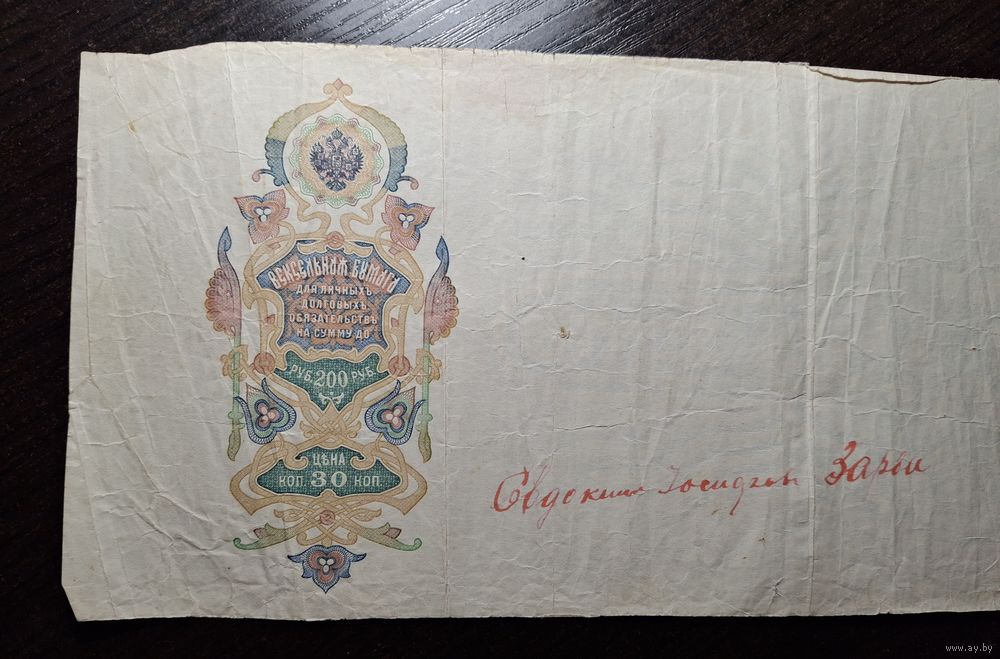 ВЕКСЕЛЬНАЯ БУМАГА
ДЛЯ ЛИЧНЫХЪ
ДОЛГОВЫХЪ
ОБЯЗАТЕЛЬСТВЪ
НА СУММУ ДО
РУБ. 200 РУБ.
ЦѢНА
КОП. 30 КОП.
www.ay.by